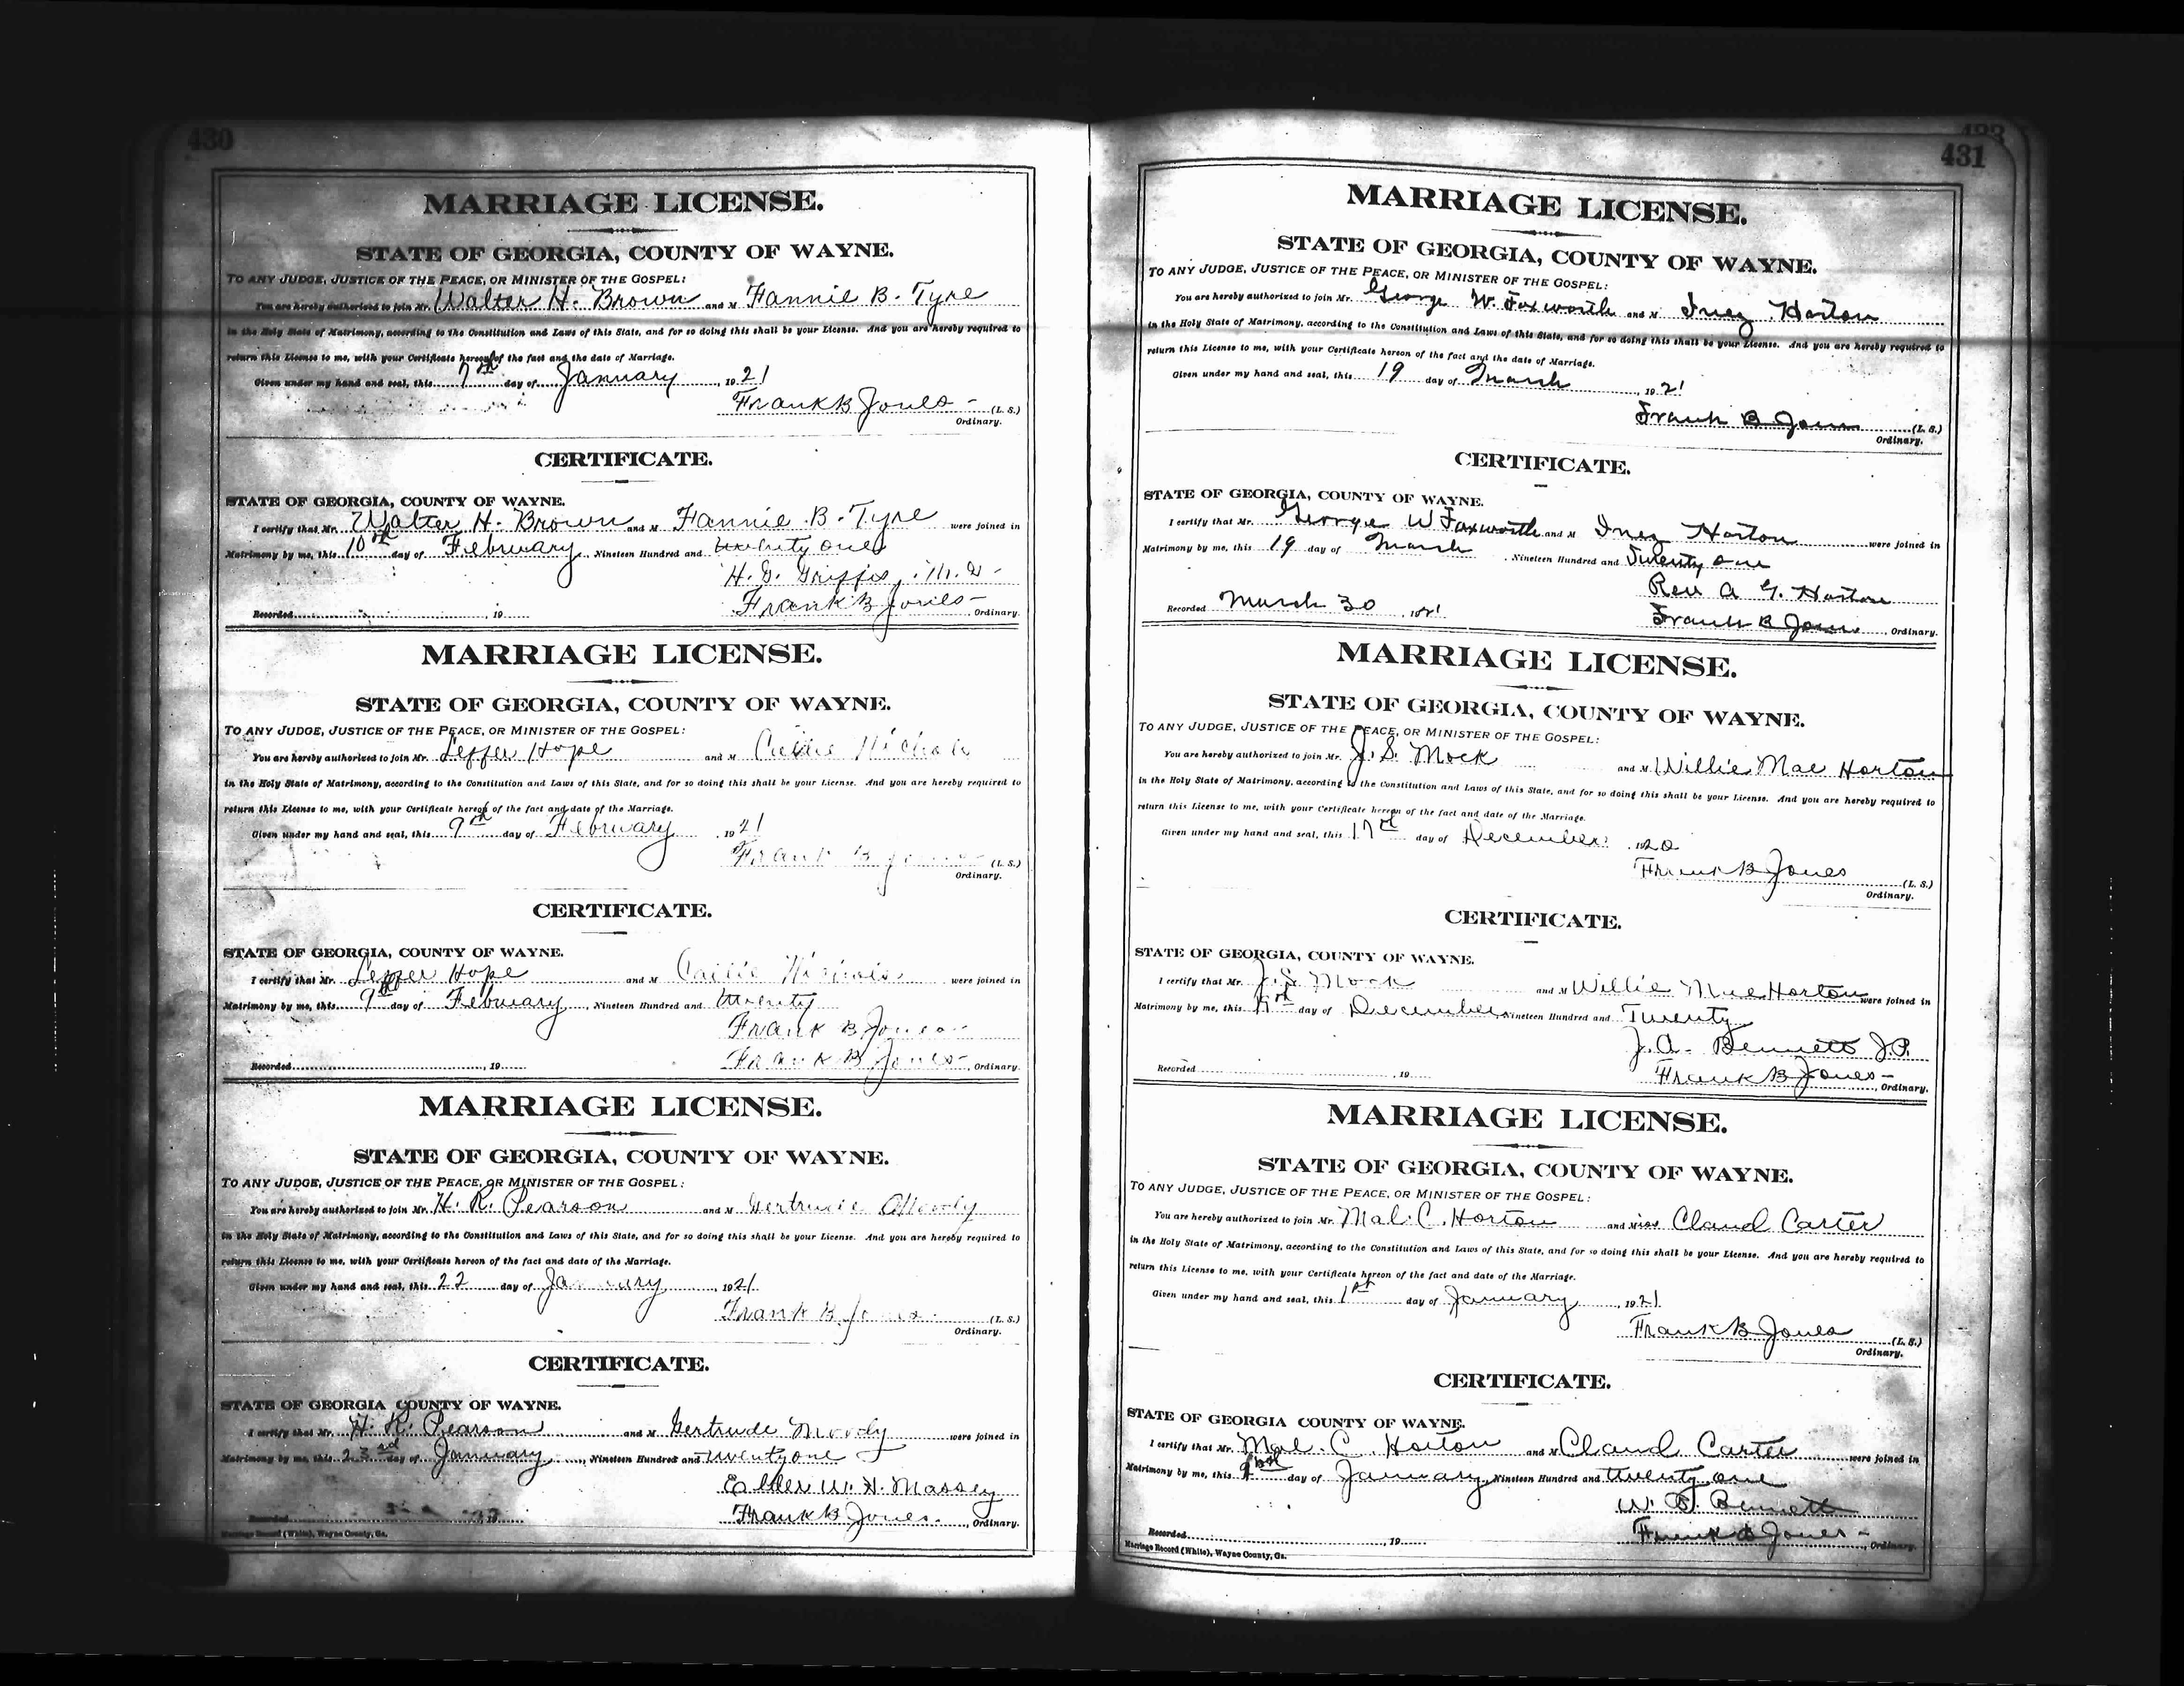 430
MARRIAGE LICENSE.
STATE OF GEORGIA, COUNTY OF WAYNE.
TO ANY JUDGE, JUSTICE OF THE PEACE, OR MINISTER OF THE GOSPEL:
You are hereby authorized to join Mr. Walter H. Brown and M Fannie B. Tyre
in the Holy State of Matrimony, according to the Constitution and Laws of this State, and for so doing this shall be your License. And you are hereby required to
return this License to me, with your Certificate hereon of the fact and the date of Marriage.
Given under my hand and seal, this 7th day of January, 1921
Frank B Jones - (L. S.)
Ordinary.
CERTIFICATE.
STATE OF GEORGIA, COUNTY OF WAYNE.
I certify that Mr. Walter H. Brown and M Fannie B. Tyre were joined in
Matrimony by me, this 10th day of February, Nineteen Hundred and twenty one
H. G. Griffis, M. G -
Frank B Jones -
Recorded, 19 Ordinary.
MARRIAGE LICENSE.
STATE OF GEORGIA, COUNTY OF WAYNE.
TO ANY JUDGE, JUSTICE OF THE PEACE, OR MINISTER OF THE GOSPEL:
You are hereby authorized to join Mr. Leffer Hope and M
in the Holy State of Matrimony, according to the Constitution and Laws of this State, and for so doing this shall be your License. And you are hereby required to
return this License to me, with your Certificate hereon of the fact and date of the Marriage.
Given under my hand and seal, this 9th day of February, 1921
Frank B Jones (L. S.)
Ordinary.
CERTIFICATE.
STATE OF GEORGIA, COUNTY OF WAYNE.
I certify that Mr. Leffer Hope and M were joined in
Matrimony by me, this 9th day of February, Nineteen Hundred and twenty
Frank B Jones -
Recorded, 19 Frank B Jones -, Ordinary.
MARRIAGE LICENSE.
STATE OF GEORGIA, COUNTY OF WAYNE.
TO ANY JUDGE, JUSTICE OF THE PEACE, OR MINISTER OF THE GOSPEL:
You are hereby authorized to join Mr. H. R. Pearson and M Gertrude Moody
in the Holy State of Matrimony, according to the Constitution and Laws of this State, and for so doing this shall be your License. And you are hereby required to
return this License to me, with your Certificate hereon of the fact and date of the Marriage.
Given under my hand and seal, this 22 day of January, 1921
Frank B Jones (L. S.)
Ordinary.
CERTIFICATE.
STATE OF GEORGIA COUNTY OF WAYNE.
I certify that Mr. H. R. Pearson and M Gertrude Moody were joined in
Matrimony by me, this 23rd day of January, Nineteen Hundred and twenty one
Elder W. H. Massey
Recorded, 19 Frank B Jones., Ordinary.
Marriage Record (White), Wayne County, Ga.
433
431
MARRIAGE LICENSE.
STATE OF GEORGIA, COUNTY OF WAYNE.
TO ANY JUDGE, JUSTICE OF THE PEACE, OR MINISTER OF THE GOSPEL:
You are hereby authorized to join Mr. George W. Foxworth and M Inez Horton
in the Holy State of Matrimony, according to the Constitution and Laws of this State, and for so doing this shall be your License. And you are hereby required to
return this License to me, with your Certificate hereon of the fact and the date of Marriage.
Given under my hand and seal, this 19 day of March, 1921
Frank B Jones (L. S.)
Ordinary.
CERTIFICATE.
STATE OF GEORGIA, COUNTY OF WAYNE.
I certify that Mr. George W Foxworth and M Inez Horton were joined in
Matrimony by me, this 19 day of March, Nineteen Hundred and Twenty one
Rev A G. Horton
Recorded March 30, 1921 Frank B Jones, Ordinary.
MARRIAGE LICENSE.
STATE OF GEORGIA, COUNTY OF WAYNE.
TO ANY JUDGE, JUSTICE OF THE PEACE, OR MINISTER OF THE GOSPEL:
You are hereby authorized to join Mr. J. S. Mock and M Willie Mae Horton
in the Holy State of Matrimony, according to the Constitution and Laws of this State, and for so doing this shall be your License. And you are hereby required to
return this License to me, with your Certificate hereon of the fact and date of the Marriage.
Given under my hand and seal, this 17th day of December, 1920
Frank B Jones (L. S.)
Ordinary.
CERTIFICATE.
STATE OF GEORGIA, COUNTY OF WAYNE.
I certify that Mr. J. S. Mock and M Willie Mae Horton were joined in
Matrimony by me, this 17th day of December, Nineteen Hundred and Twenty
J. A. Bennett J.P.
Recorded, 19 Frank B Jones -, Ordinary.
MARRIAGE LICENSE.
STATE OF GEORGIA, COUNTY OF WAYNE.
TO ANY JUDGE, JUSTICE OF THE PEACE, OR MINISTER OF THE GOSPEL:
You are hereby authorized to join Mr. Mal. C. Horton and Miss Claud Carter
in the Holy State of Matrimony, according to the Constitution and Laws of this State, and for so doing this shall be your License. And you are hereby required to
return this License to me, with your Certificate hereon of the fact and date of the Marriage.
Given under my hand and seal, this 1st day of January, 1921
Frank B Jones (L. S.)
Ordinary.
CERTIFICATE.
STATE OF GEORGIA COUNTY OF WAYNE.
I certify that Mr. Mal. C. Horton and M Claud Carter were joined in
Matrimony by me, this day of January, Nineteen Hundred and twenty one
W. B. Bennett
Recorded, 19 Frank B Jones -, Ordinary.
Marriage Record (White), Wayne County, Ga.